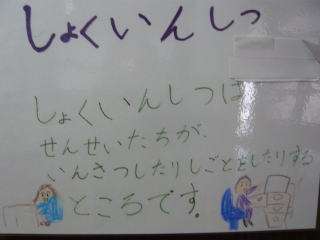 しょくいんしつ
しょくいんしつは
せんせいたちが、
いんさつしたりしごとをしたりする
ところです。